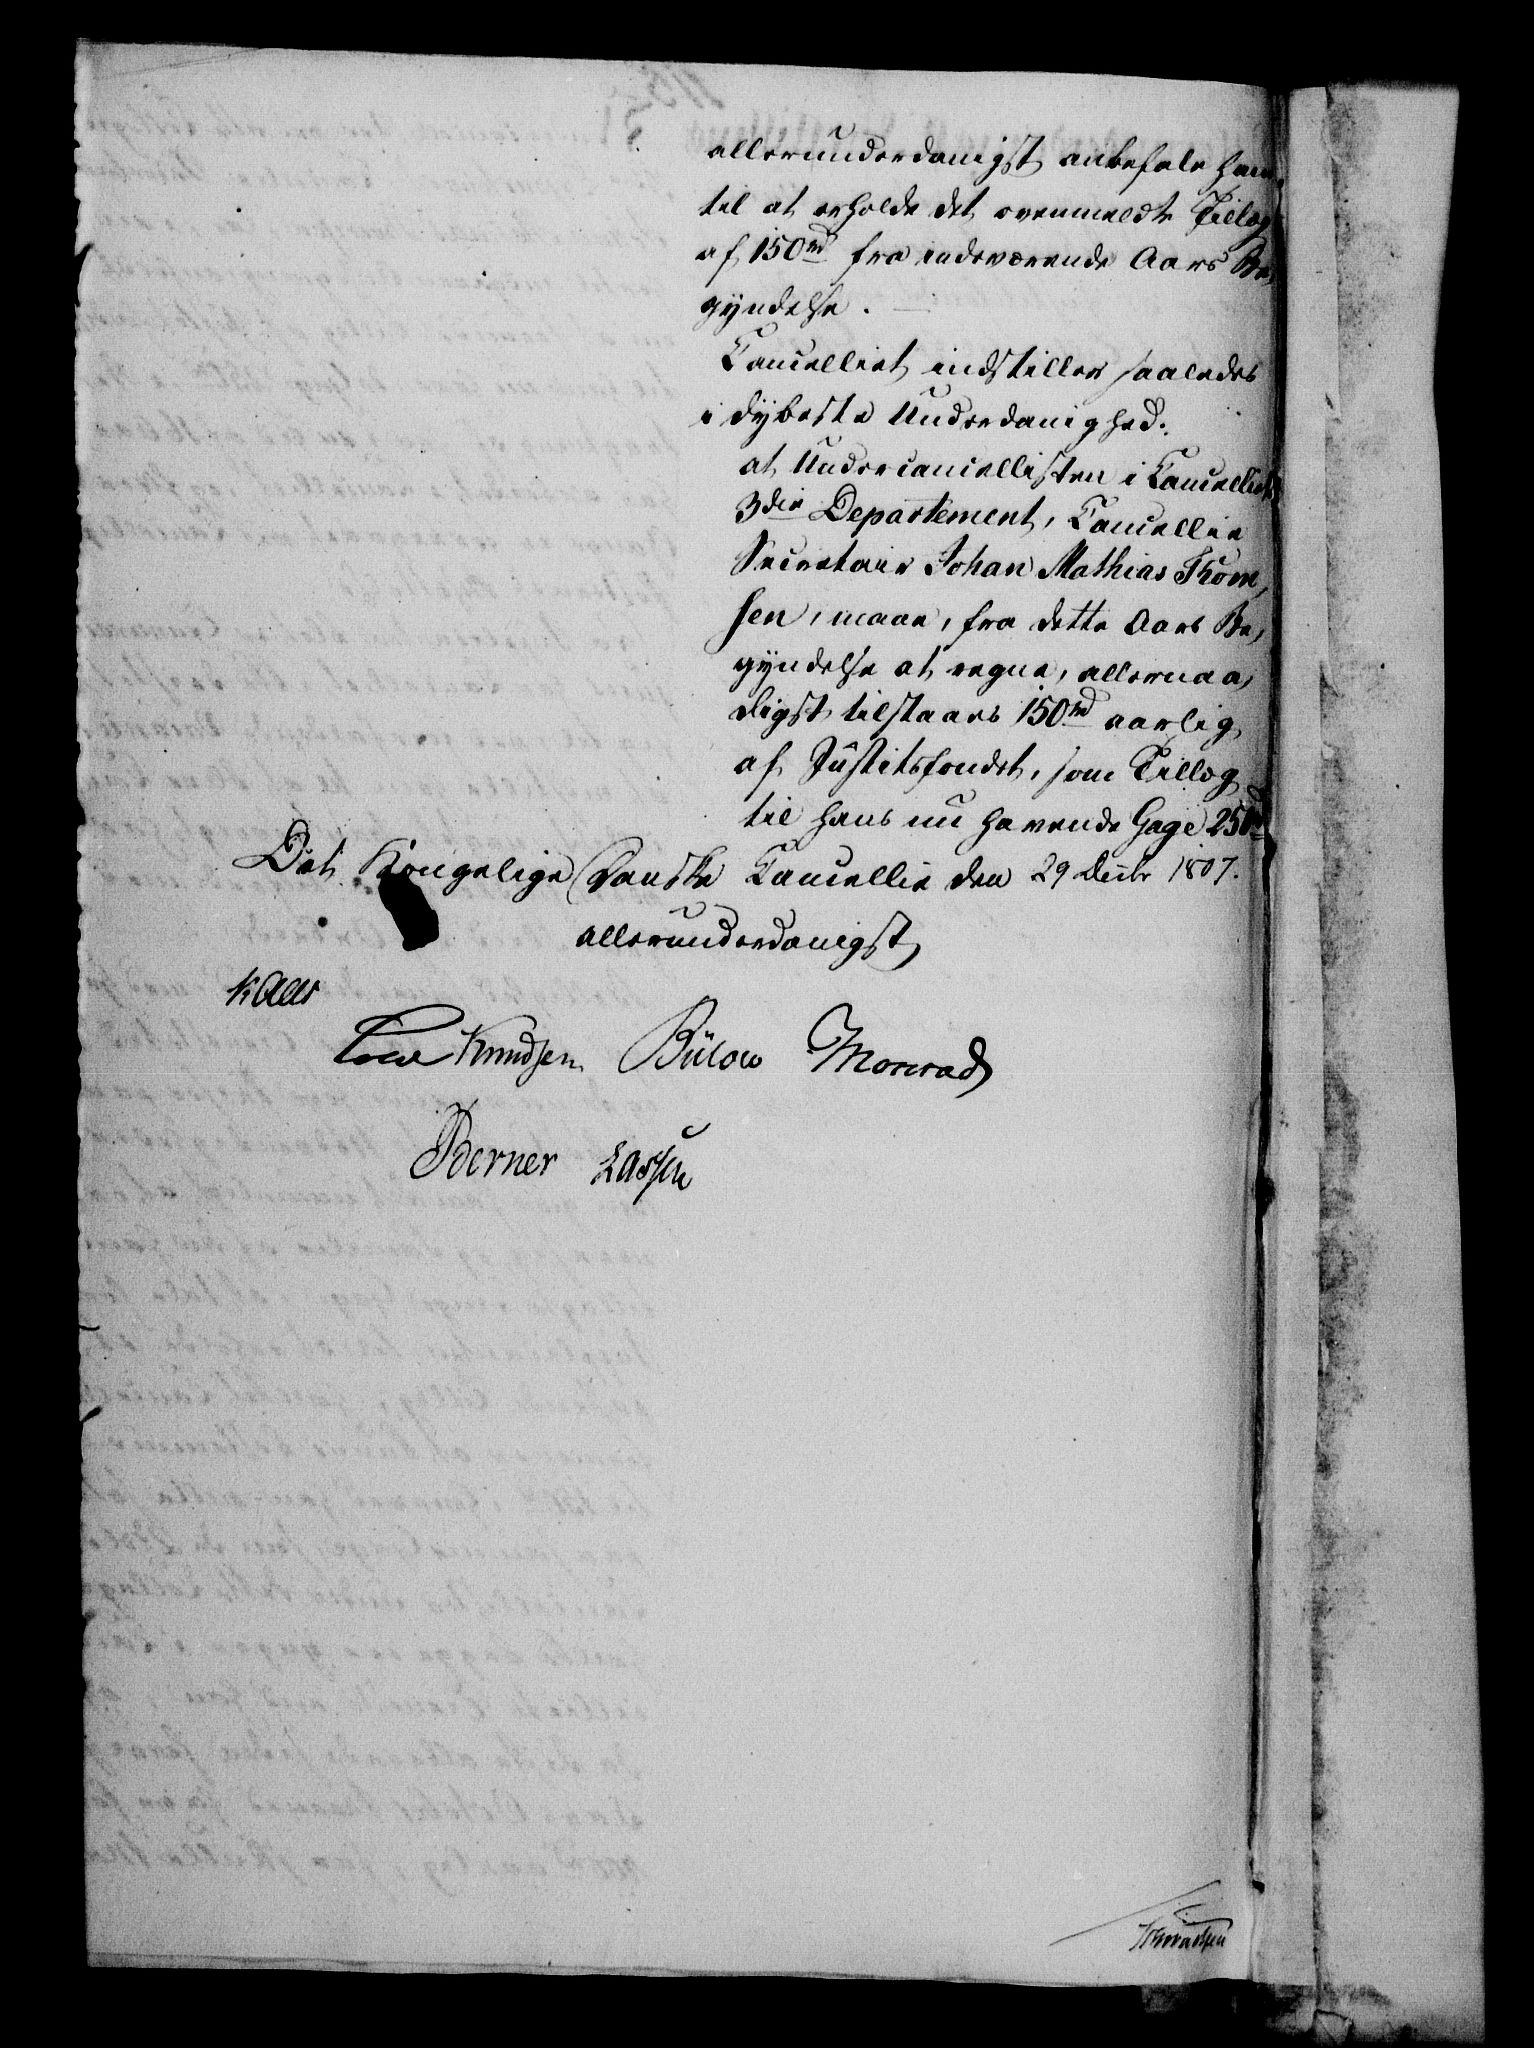 allerunderdanigst anbefale ham
til at erholde det ovenmeldte Tillæg
af 150 rd fra indeværende Aars Be,
gyndelse.
Cancelliet indstiller saaledes
i dybeste Underdanighed:
at Undercancellisten i Cancelliets
3die Departement, Cancellie
Secretair Johan Mathias Thom,
sen, maae, fra dette Aars Be,
gyndelse at regne, allernaa,
digst tilstaaes 150 rd aarlig
af Justitsfondet, som Tillæg
til hans nu havende Gage 250 rd
Det Kongelige Danske Cancellie den 29 Decbr 1807.
allerunderdanigst
Kaas
Knudsen Bülow Monrad
Berner Lassen